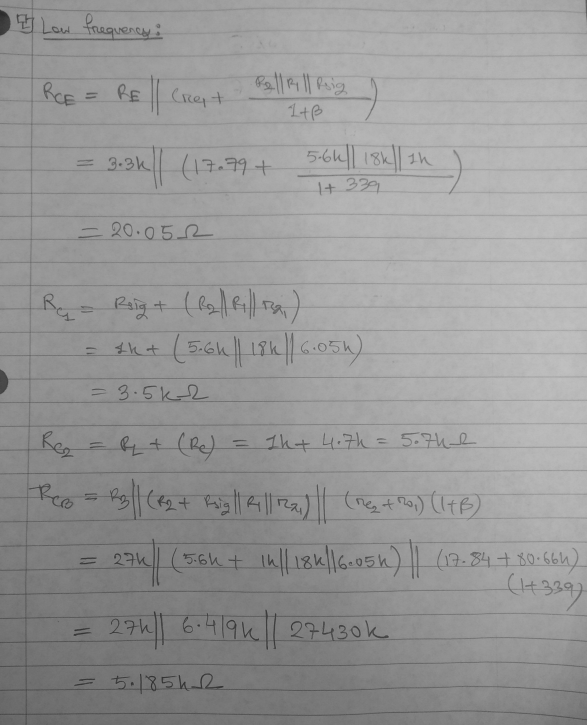 Low frequency:
R_CE = R_E || (r_e1 + (R_2||R_1||R_sig)/(1+β))
= 3.3k || (17.79 + (5.6k||18k||1k)/(1+339))
= 20.05Ω
R_C1 = R_sig + (R_2||R_1||r_π1)
= 1k + (5.6k||18k||6.05k)
= 3.5kΩ
R_C2 = R_L + (R_C) = 1k + 4.7k = 5.7kΩ
R_CB = R_3||(R_2 + R_sig||R_1||r_π1)||(r_e2+r_o1)(1+β)
= 27k||(5.6k + 1k||18k||6.05k)||(17.84+80.66k)
(1+339)
= 27k||6.419k||27430k
= 5.185kΩ